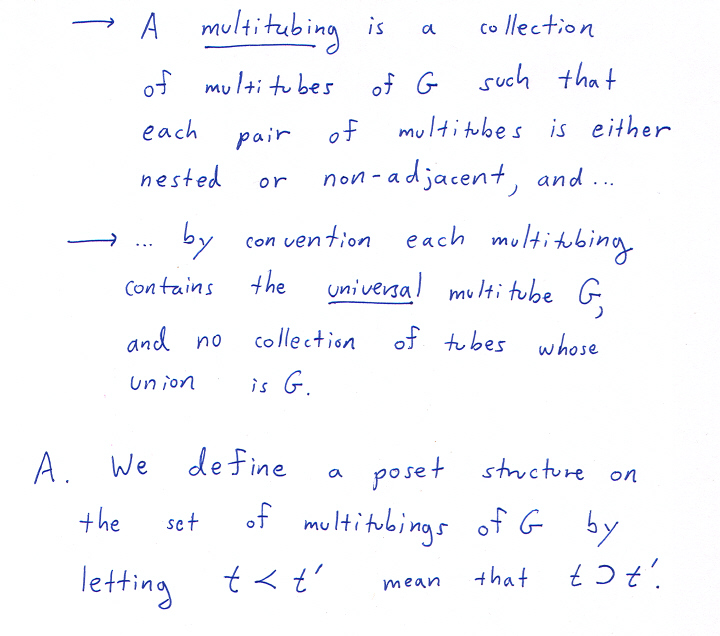 → A multitubing is a collection
of multitubes of G such that
each pair of multitubes is either
nested or non-adjacent, and...
→ ... by convention each multitubing
contains the universal multitube G,
and no collection of tubes whose
union is G.
A. We define a poset structure on
the set of multitubings of G by
letting t < t' mean that t ⊃ t'.